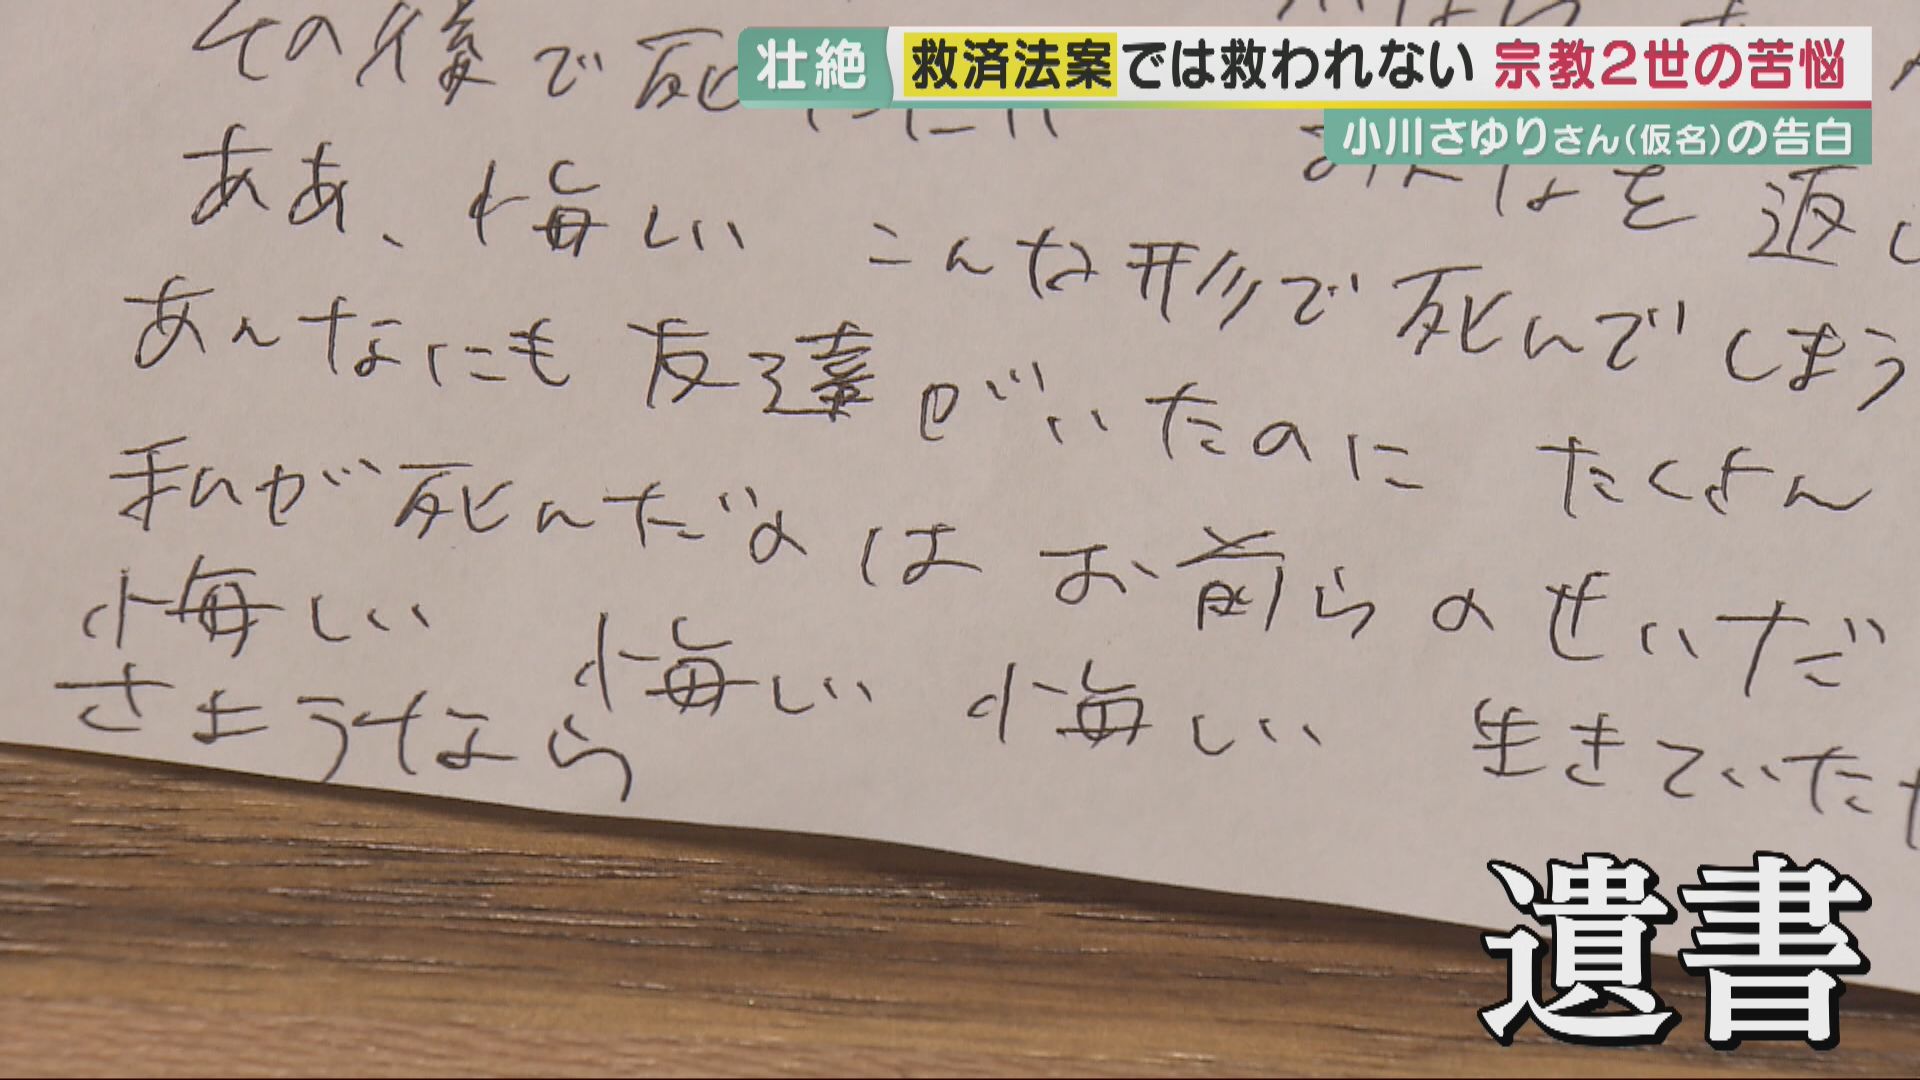 壮絶
救済法案では救われない 宗教2世の苦悩
小川さゆりさん(仮名)の告白
その後で死
ああ、悔しい こんな形で死んでしまう
を返し
あんなにも友達がいたのに たくさん
私が死んだのは お前らのせいだ
悔しい 悔しい 悔しい 生きていた
さようなら
遺書